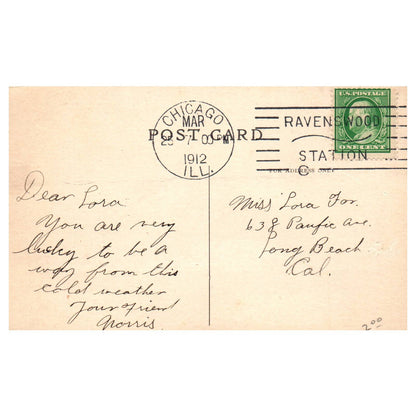 CHICAGO
MAR
7 00 PM
1912
ILL.
U.S. POSTAGE
ONE CENT
RAVENSWOOD
STATION
POST CARD
FOR ADDRESS ONLY
Dear Lora
You are very
lucky to be a
way from this
cold weather
Your friend
Norris.
Miss Lora Fox.
638 Pacific Ave.
Long Beach
Cal.
2.00